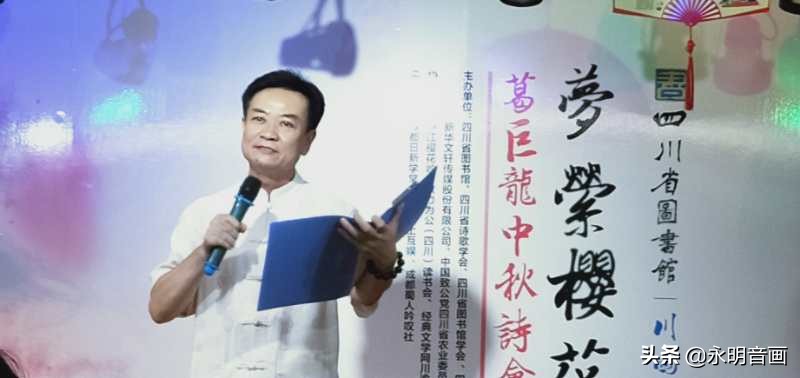 四川省圖書館｜川
夢縈櫻
葛巨龍中秋詩會
主办单位：四川省图书馆、四川省诗歌学会、四川省图书馆学会、
新华文轩传媒股份有限公司、中国致公党四川省农业委员
江樱花 为公（四川）读书会、经典文学网川
都日新学 互娱、成都蜀人吟叹社
头条 @永明音画